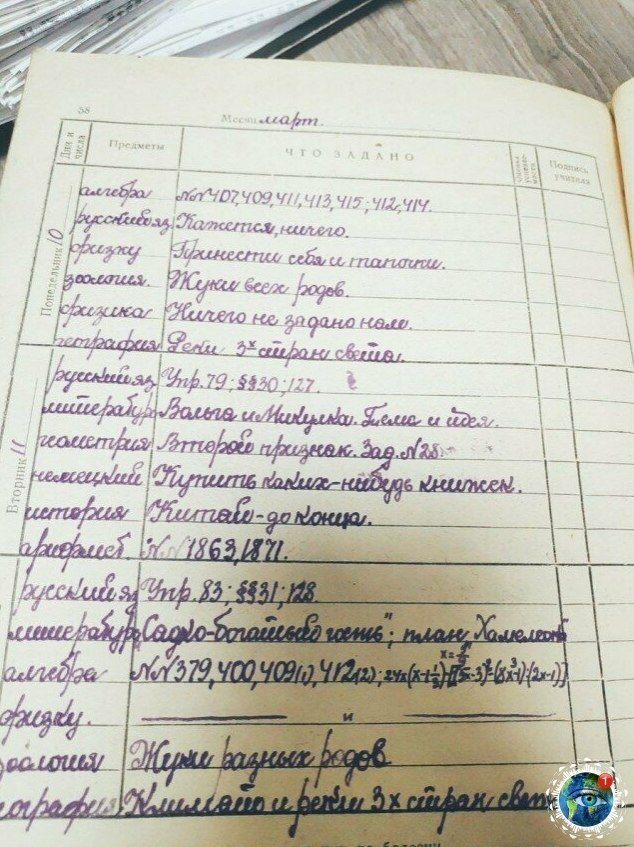 58
Месяц март.
Дни и числа Предметы ЧТО ЗАДАНО Оценка успеваемости Подпись учителя
Понедельник 10
алгебра №№407,409,411,413,415; 412,414.
русский яз. Кажется, ничего.
физку Принести себя и тапочки.
зоология. Жуки всех родов.
физика Ничего не задано нам.
география Реки 3х стран света.
Вторник 11
русский яз. Упр. 79; §§30; 127.
литература Вольга и Микулка. Тема и идея.
геометрия Второй признак. Зад. №28
немецкий Купить каких-нибудь книжек.
история Китай - до конца.
арифмет. №№1863,1871.
русский яз Упр. 83; §§31; 128
литература "Садко-богатый гость"; план "Хамелеона"
алгебра №№379,400,409(1),412(2);
физку. ——— и ———
зоология Жуки разных родов
география Климат и реки 3х стран света
1